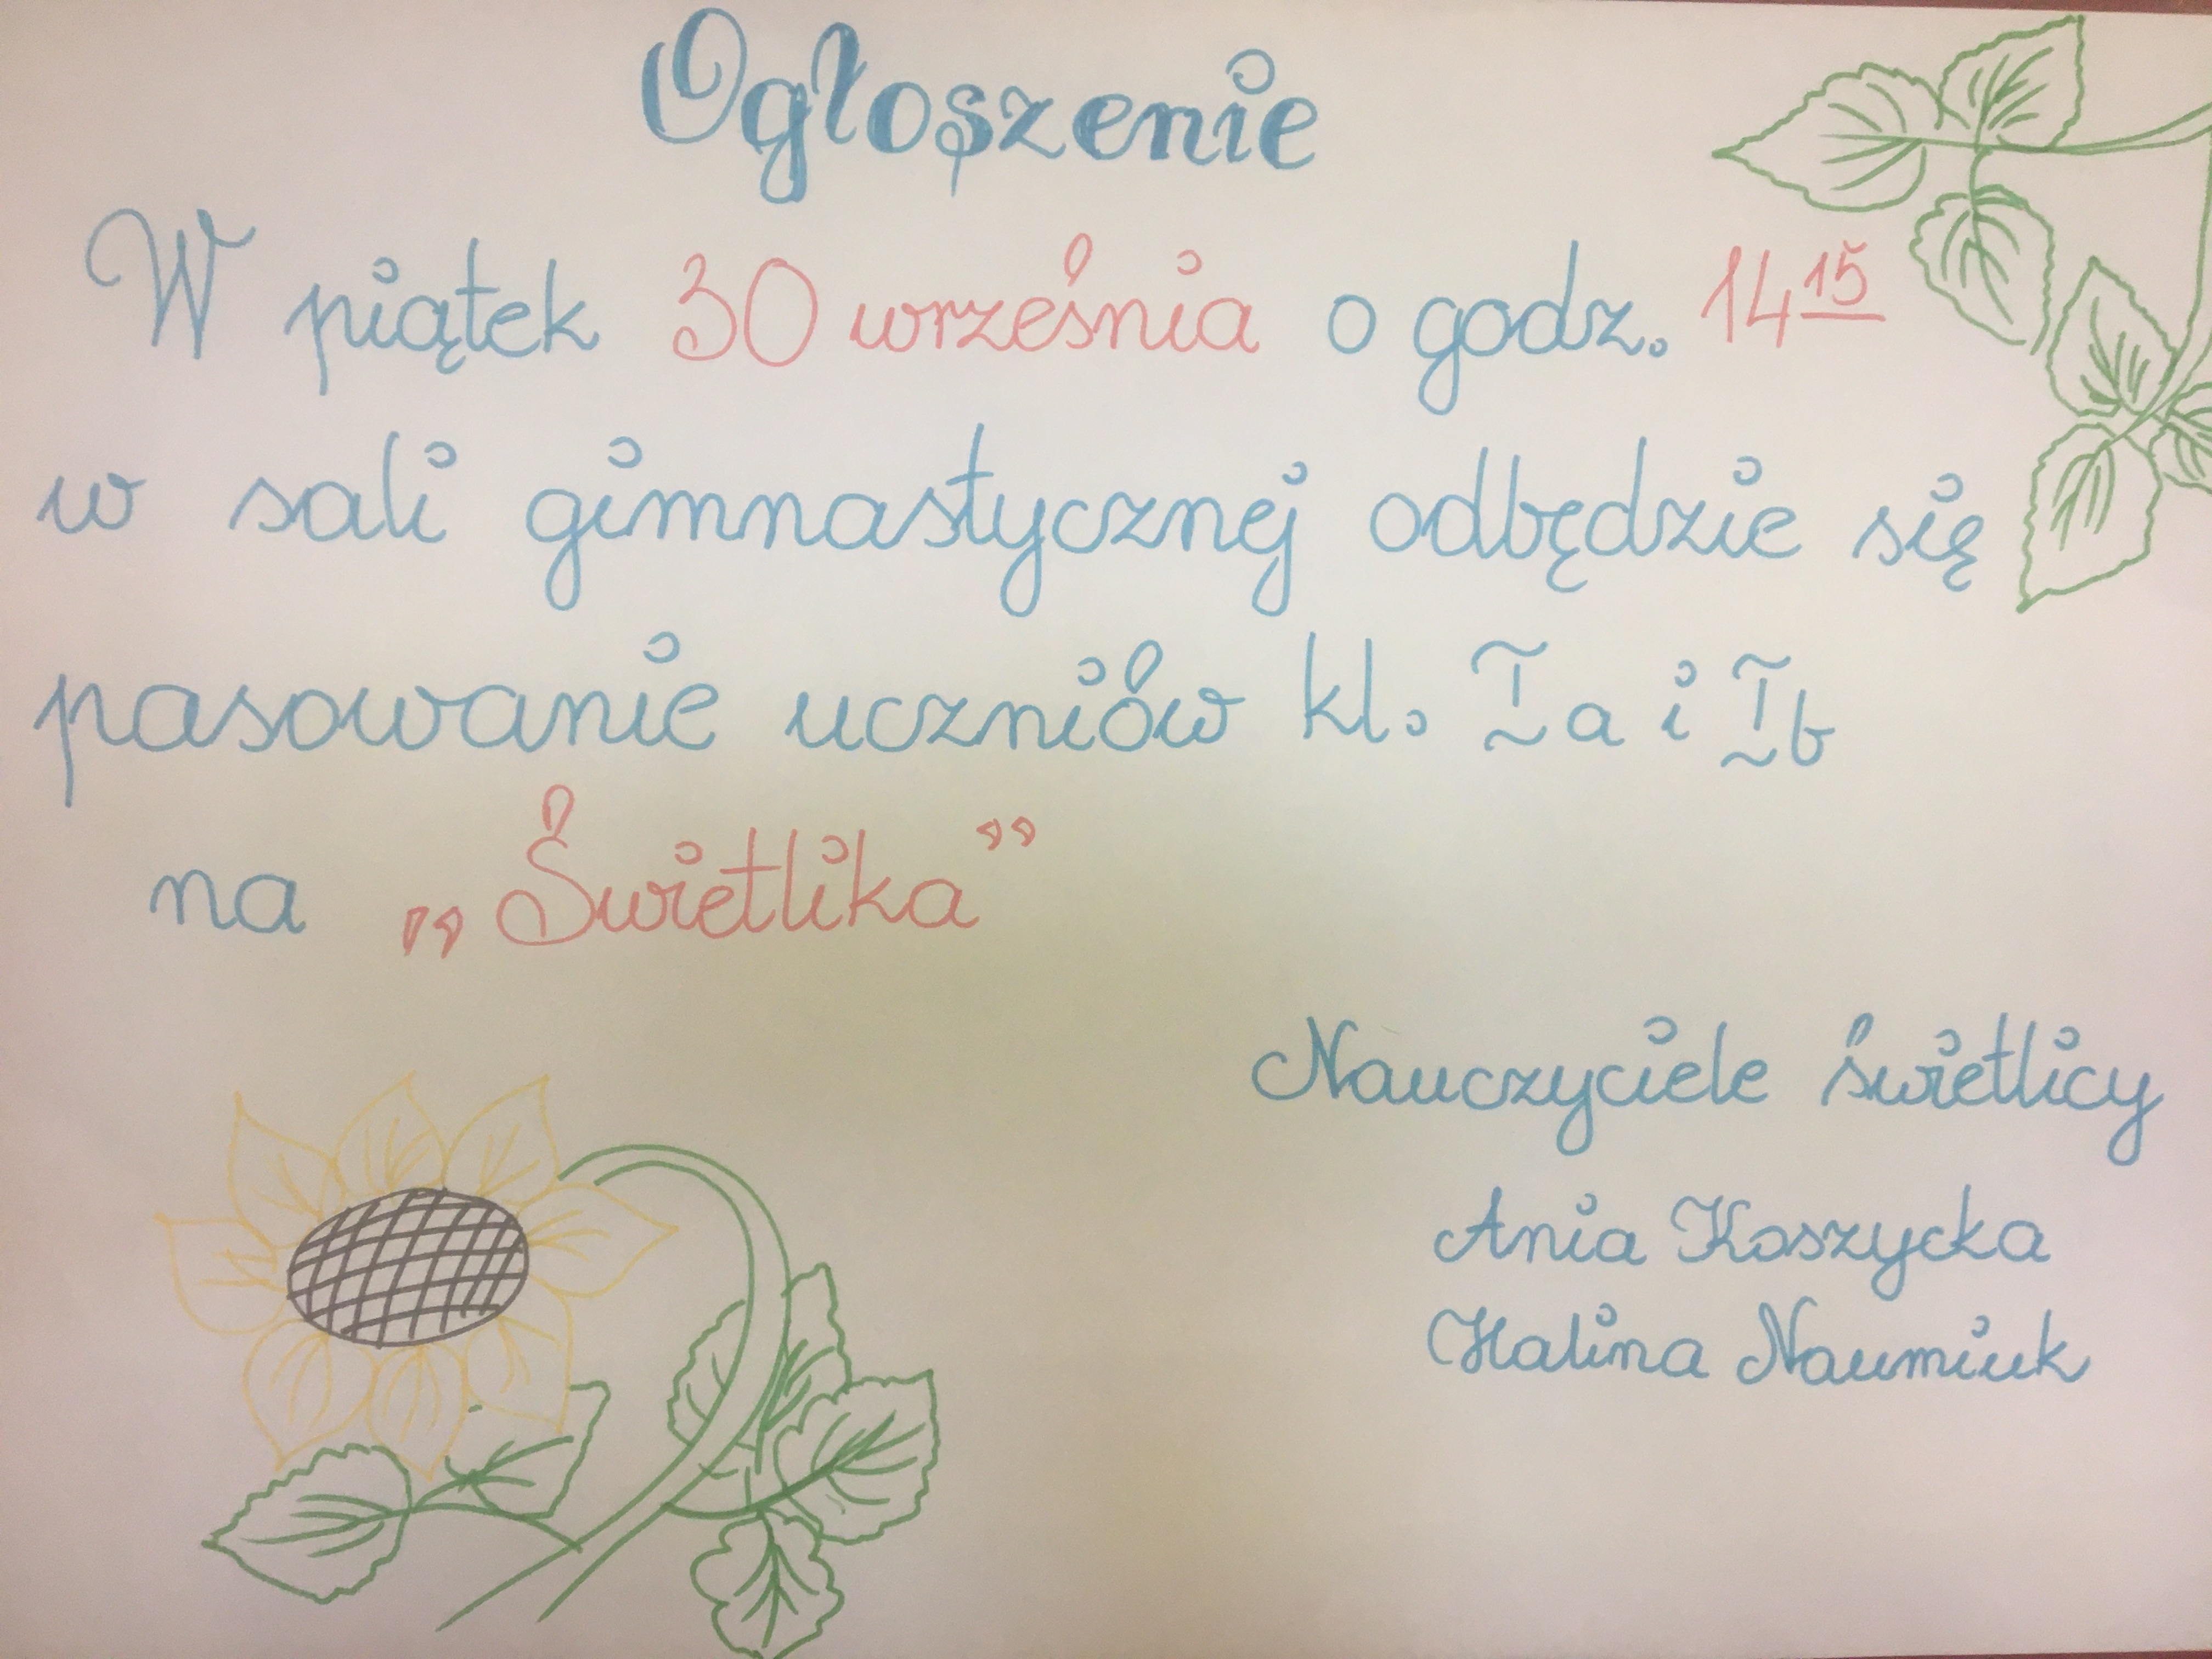 Ogłoszenie
W piątek 30 września o godz. 14¹⁵
w sali gimnastycznej odbędzie się
pasowanie uczniów kl. Ia i Ib
na „Świetlika”
Nauczyciele świetlicy
Ania Koszycka
Halina Naumiuk